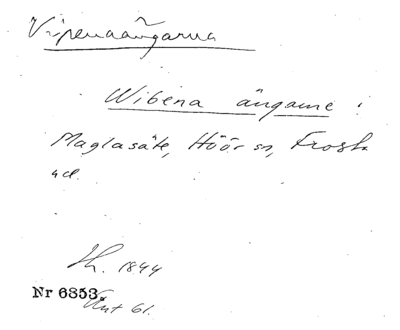 Vipenaängarna
Wibena ängarne :
Maglasäte, Höör sn, Frosta
hd.
1844
Nr 6353.
Akt 61.